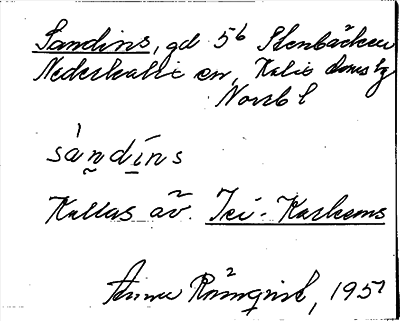 Sandins, gd 5⁶ Stenbäcken
Nederkalix sn, Kalix domsbg
Norrb l
sàndíns
Kallas äv. Isi-Karlsons
Rönnqvist, 1951